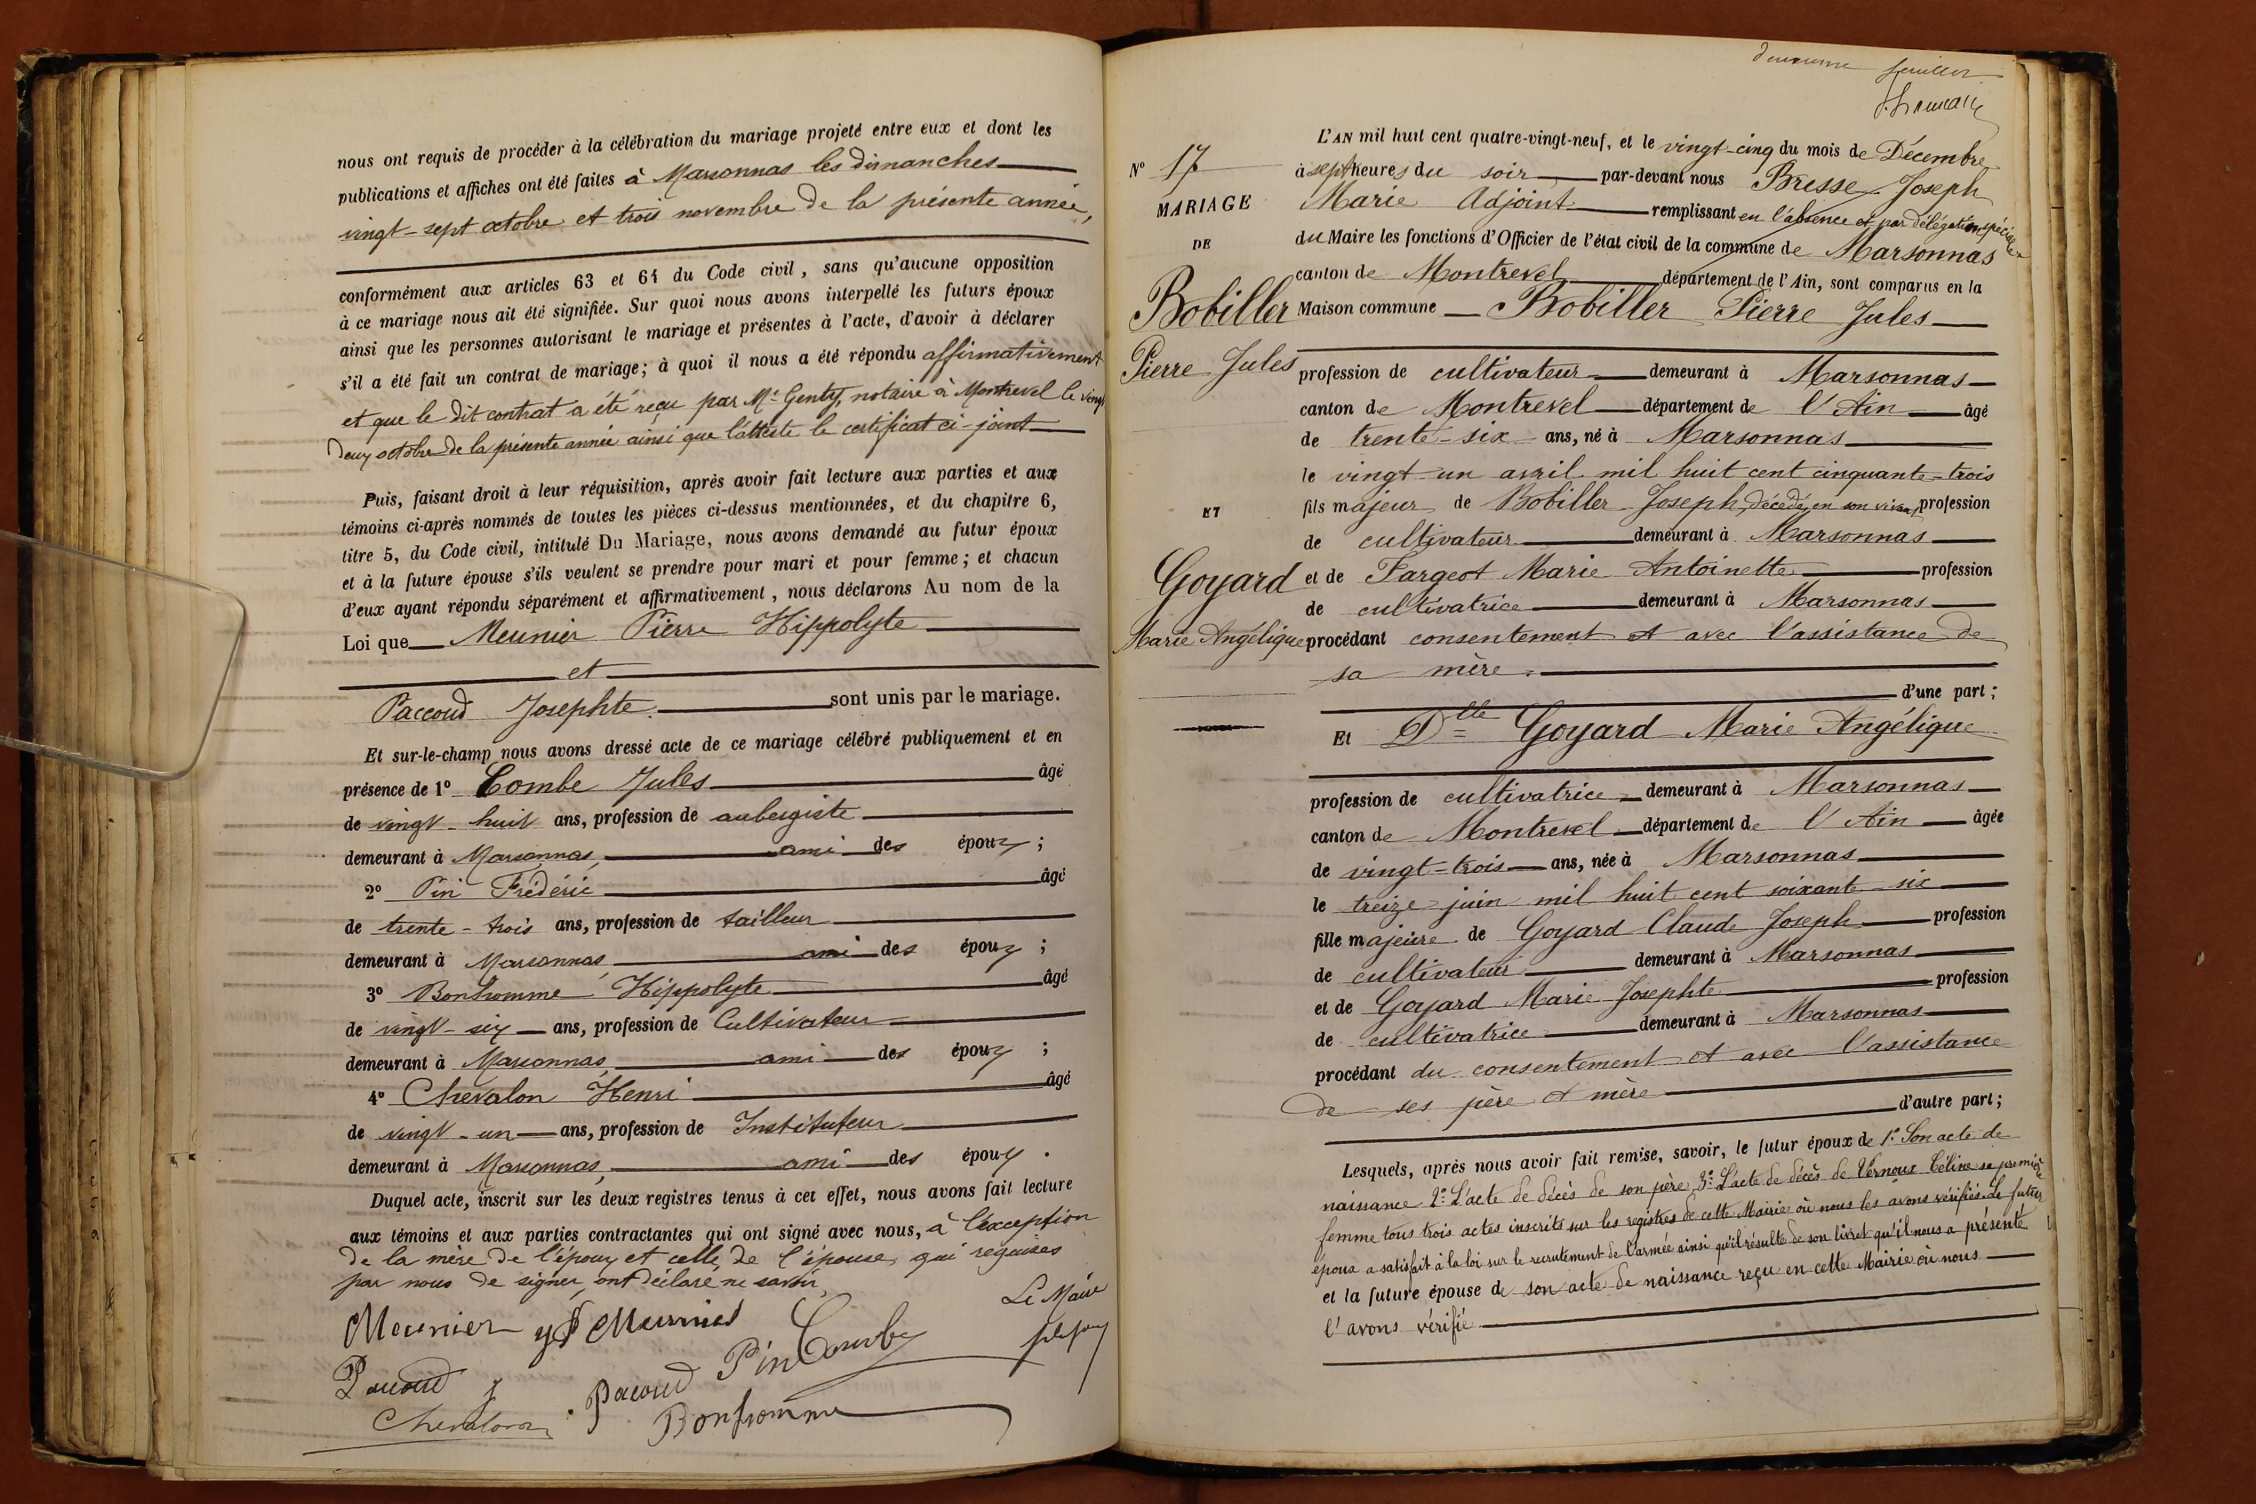 nous ont requis de procéder à la célébration du mariage projeté entre eux et dont les
publications et affiches ont été faites à Marsonnas les dimanches
vingt-sept octobre et trois novembre de la présente année,
conformément aux articles 63 et 64 du Code civil, sans qu'aucune opposition
à ce mariage nous ait été signifiée. Sur quoi nous avons interpellé les futurs époux
ainsi que les personnes autorisant le mariage et présentes à l'acte, d'avoir à déclarer
s'il a été fait un contrat de mariage; à quoi il nous a été répondu affirmativement
et que le dit contrat a été reçu par Me Genty, notaire à Montrevel le vingt
deux octobre de la présente année ainsi que l'atteste le certificat ci-joint
Puis, faisant droit à leur réquisition, après avoir fait lecture aux parties et aux
témoins ci-après nommés de toutes les pièces ci-dessus mentionnées, et du chapitre 6,
titre 5, du Code civil, intitulé Du Mariage, nous avons demandé au futur époux
et à la future épouse s'ils veulent se prendre pour mari et pour femme; et chacun
d'eux ayant répondu séparément et affirmativement, nous déclarons Au nom de la
Loi que Meunier Pierre Hippolyte
et
Paccoud Josephte sont unis par le mariage.
Et sur-le-champ nous avons dressé acte de ce mariage célébré publiquement et en
présence de 1° Combe Jules âgé
de vingt-huit ans, profession de aubergiste
demeurant à Marsonnas, ami des époux;
2° Pin Frédéric âgé
de trente-trois ans, profession de tailleur
demeurant à Marsonnas, ami des époux;
3° Bonhomme Hippolyte âgé
de vingt-six ans, profession de Cultivateur
demeurant à Marsonnas, ami des époux;
4° Chevalon Henri âgé
de vingt-un ans, profession de Instituteur
demeurant à Marsonnas, ami des époux.
Duquel acte, inscrit sur les deux registres tenus à cet effet, nous avons fait lecture
aux témoins et aux parties contractantes qui ont signé avec nous, à l'exception
de la mère de l'époux et celle de l'épouse, qui requises
par nous de signer, ont déclaré ne savoir
Le Maire
Meunier Meunier
Pin Combe
Pacoud J Pacoud
Chevalon Bonhomme
deuxième feuillet
L'AN mil huit cent quatre-vingt-neuf, et le vingt-cinq du mois de Décembre
N° 17
à sept heures du soir par-devant nous Bresse Joseph
MARIAGE
Marie Adjoint remplissant en l'absence et par délégation spéciale
DE
du Maire les fonctions d'Officier de l'état civil de la commune de Marsonnas
canton de Montrevel département de l'Ain, sont comparus en la
Bobiller
Maison commune Bobiller Pierre Jules
Pierre Jules
profession de cultivateur demeurant à Marsonnas
canton de Montrevel département de l'Ain âgé
de trente-six ans, né à Marsonnas
le vingt-un avril mil huit cent cinquante-trois
ET
fils majeur de Bobiller Joseph, décédé, en son vivant, profession
de cultivateur demeurant à Marsonnas
Goyard
et de Fargeot Marie Antoinette profession
de cultivatrice demeurant à Marsonnas
Marie Angélique
procédant consentement et avec l'assistance de
sa mère.
d'une part;
Et Dlle Goyard Marie Angélique
profession de cultivatrice demeurant à Marsonnas
canton de Montrevel département de l'Ain âgée
de vingt-trois ans, née à Marsonnas
le treize juin mil huit cent soixante-six
fille majeure de Goyard Claude Joseph profession
de cultivateur demeurant à Marsonnas
et de Goyard Marie Josephte profession
de cultivatrice demeurant à Marsonnas
procédant du consentement et avec l'assistance
de ses père et mère
d'autre part;
Lesquels, après nous avoir fait remise, savoir, le futur époux de 1° Son acte de
naissance 2° L'acte de décès de son père 3° L'acte de décès de Vernoux Céline sa première
femme tous trois actes inscrits sur les registres de cette Mairie où nous les avons vérifiés. Le futur
époux a satisfait à la loi sur le recrutement de l'armée ainsi qu'il résulte de son livret qu'il nous a présenté
et la future épouse de son acte de naissance reçu en cette Mairie où nous
l'avons vérifié